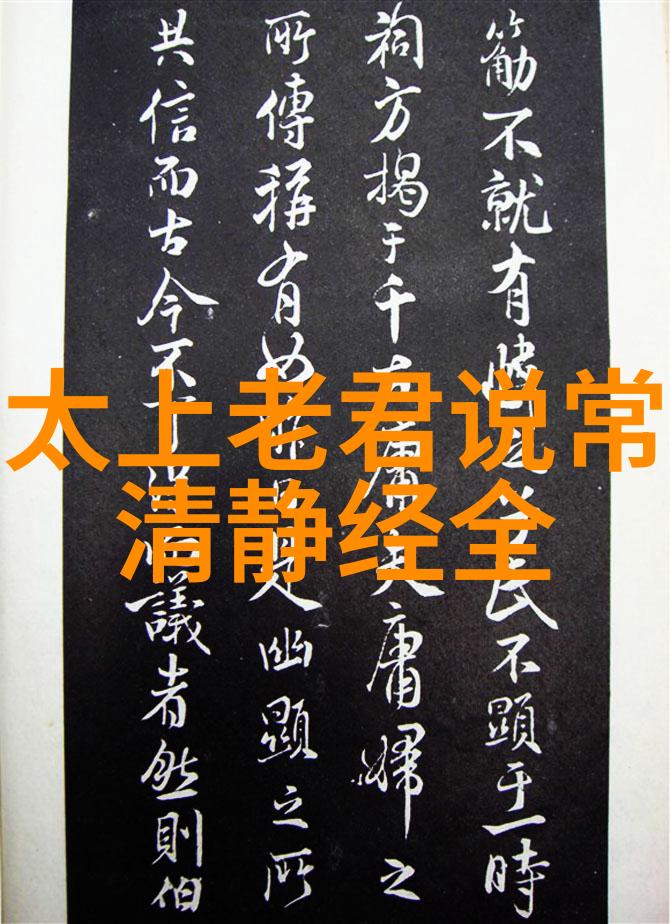 太上老君说常
清静经全
不就有之民不顯于一時
祠方揭于千庸夫庸婦之
所傳稱有是幽顯之所
共信而古今不議者然則伯